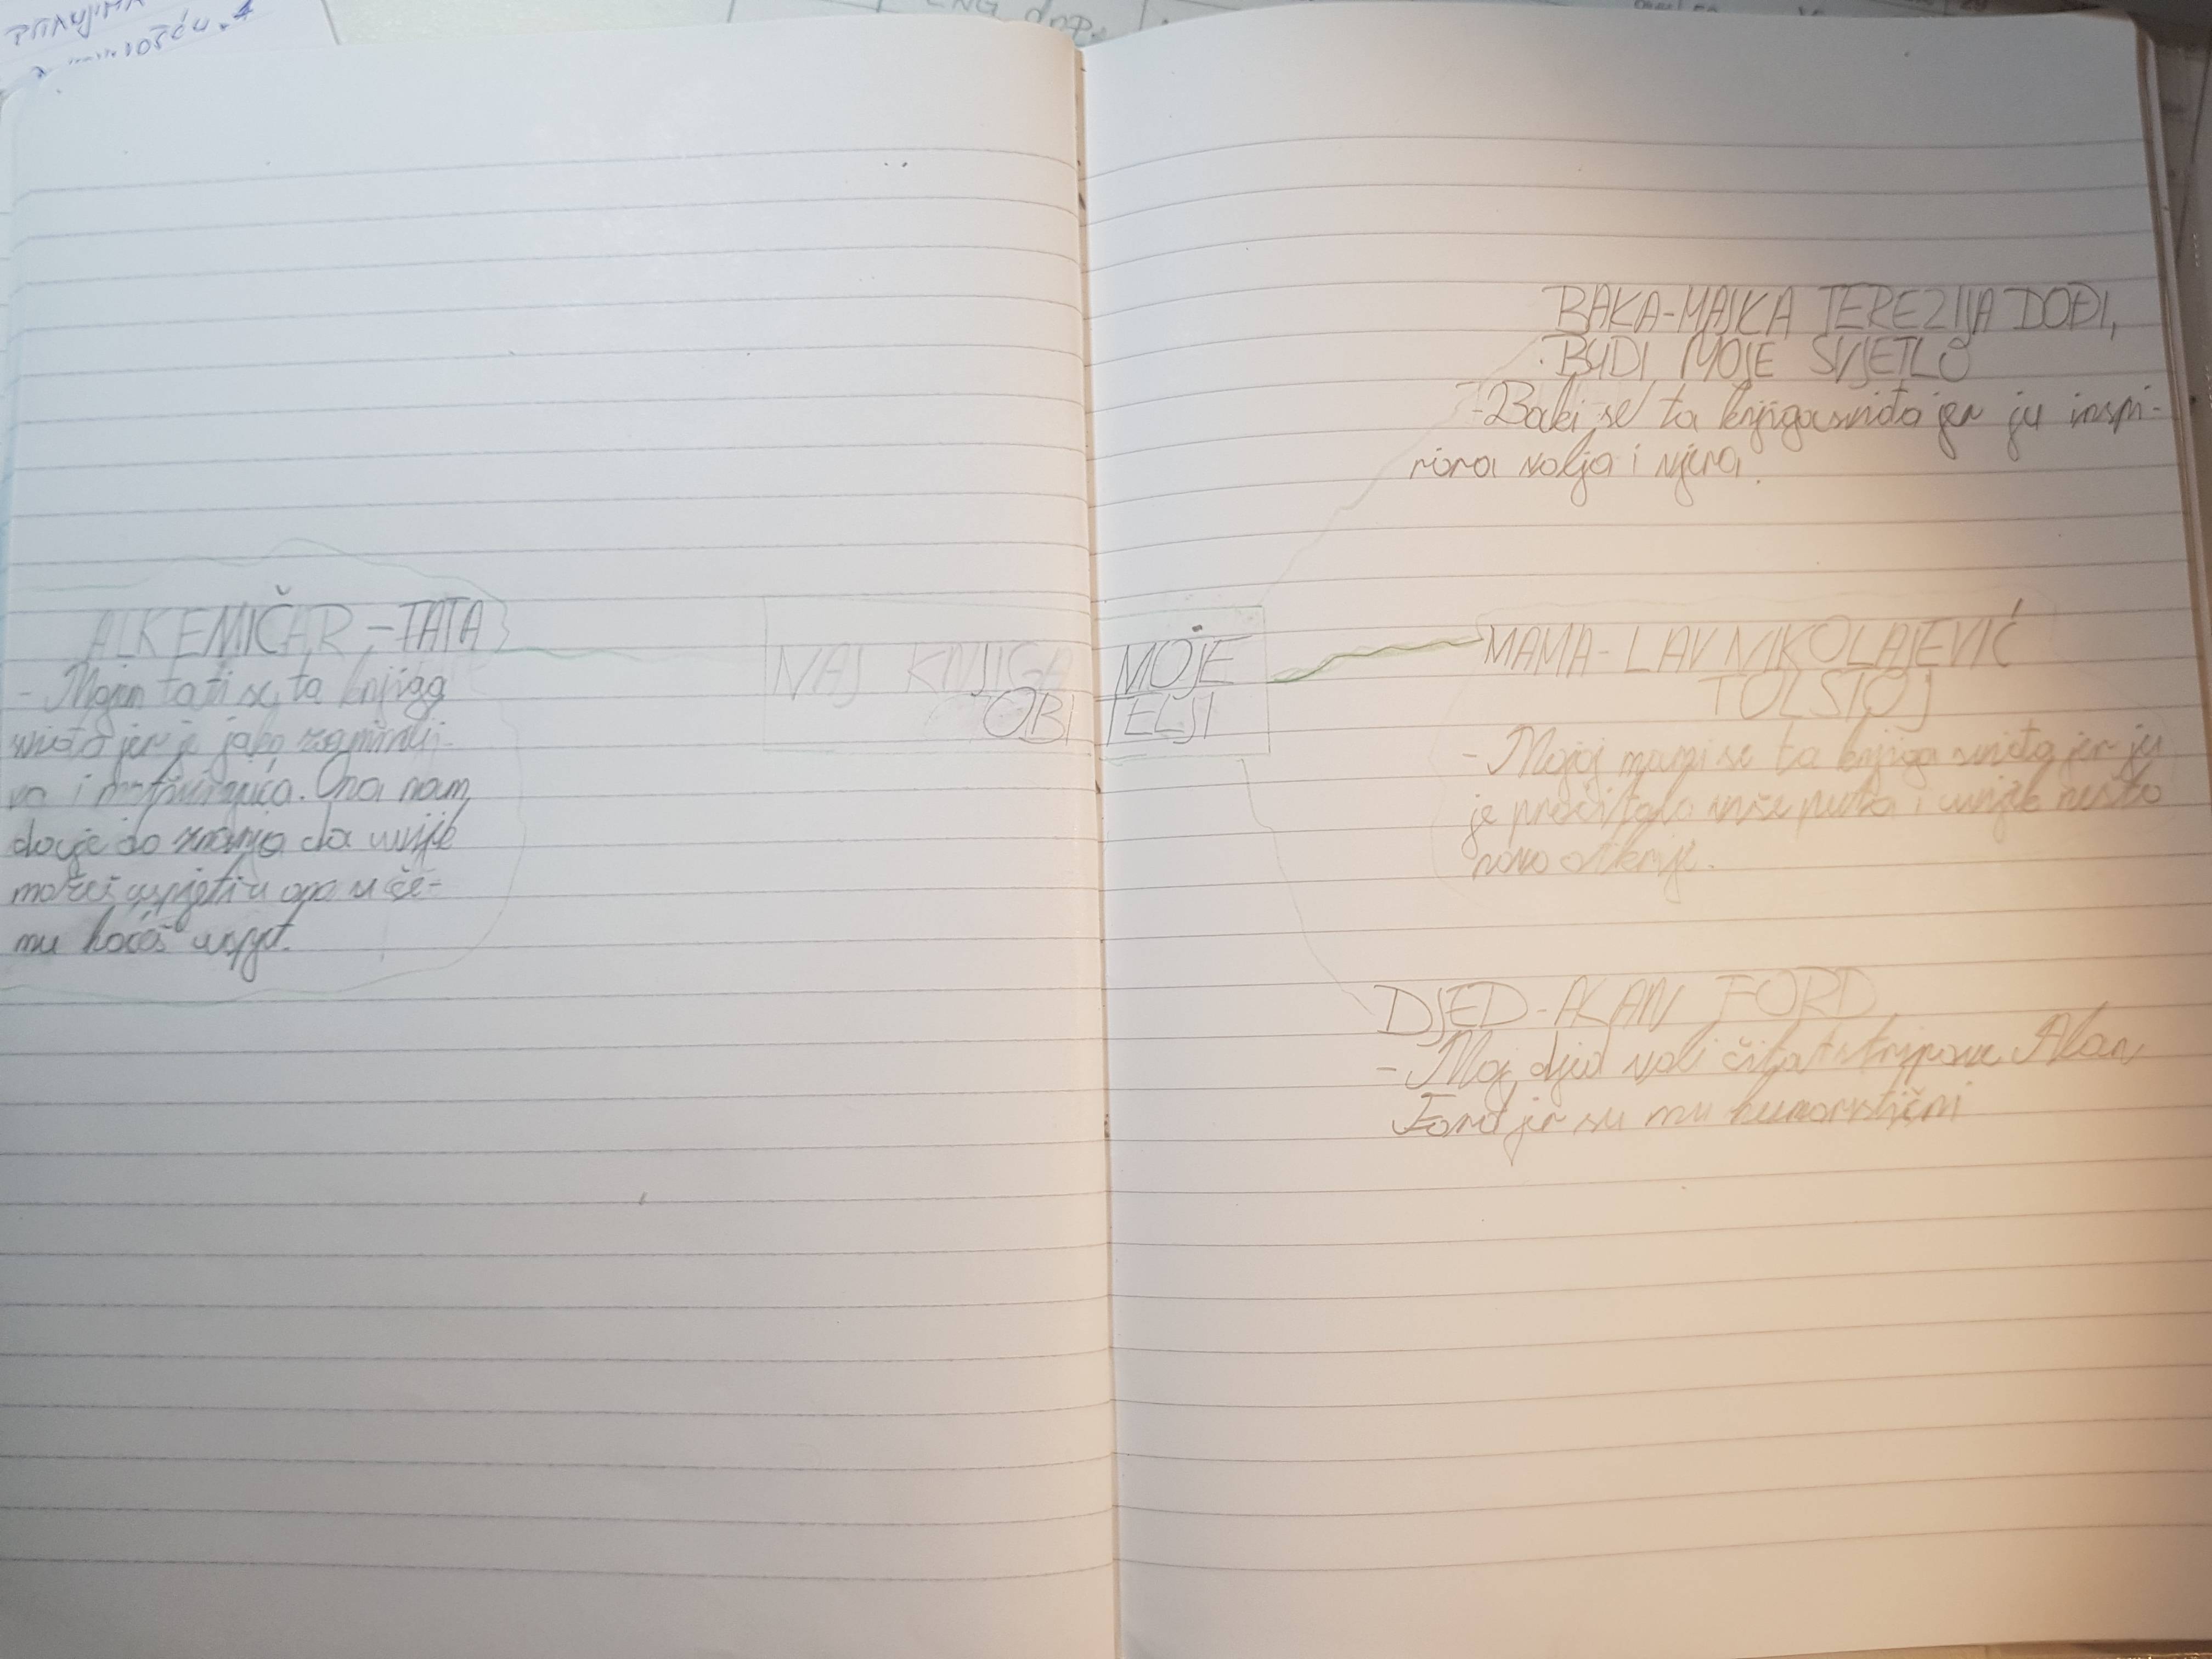 ENG dop.
ALKEMIČAR-TATA
- Mojem tati se ta knjiga
sviđa jer je jako zanimlji-
va i motivirajuća. Ona nam
daje do znanja da uvijek
možeš uspjeti u ono u če-
mu hoćeš uspjet.
NAJ KNJIGA MOJE
OBITELJI
BAKA-MAJKA TEREZIJA DOĐI,
BUDI MOJE SVJETLO
-Baki se ta knjiga sviđa jer ju inspi-
rira volja i vjera.
MAMA-LAV NIKOLAJEVIĆ
TOLSTOJ
- Mojoj mami se ta knjiga sviđa jer ju
je pročitala više puta i uvijek nešto
novo otkrije.
DJED-ALAN FORD
- Moj djed voli čitat stripove Alan
Ford jer su mu humoristični